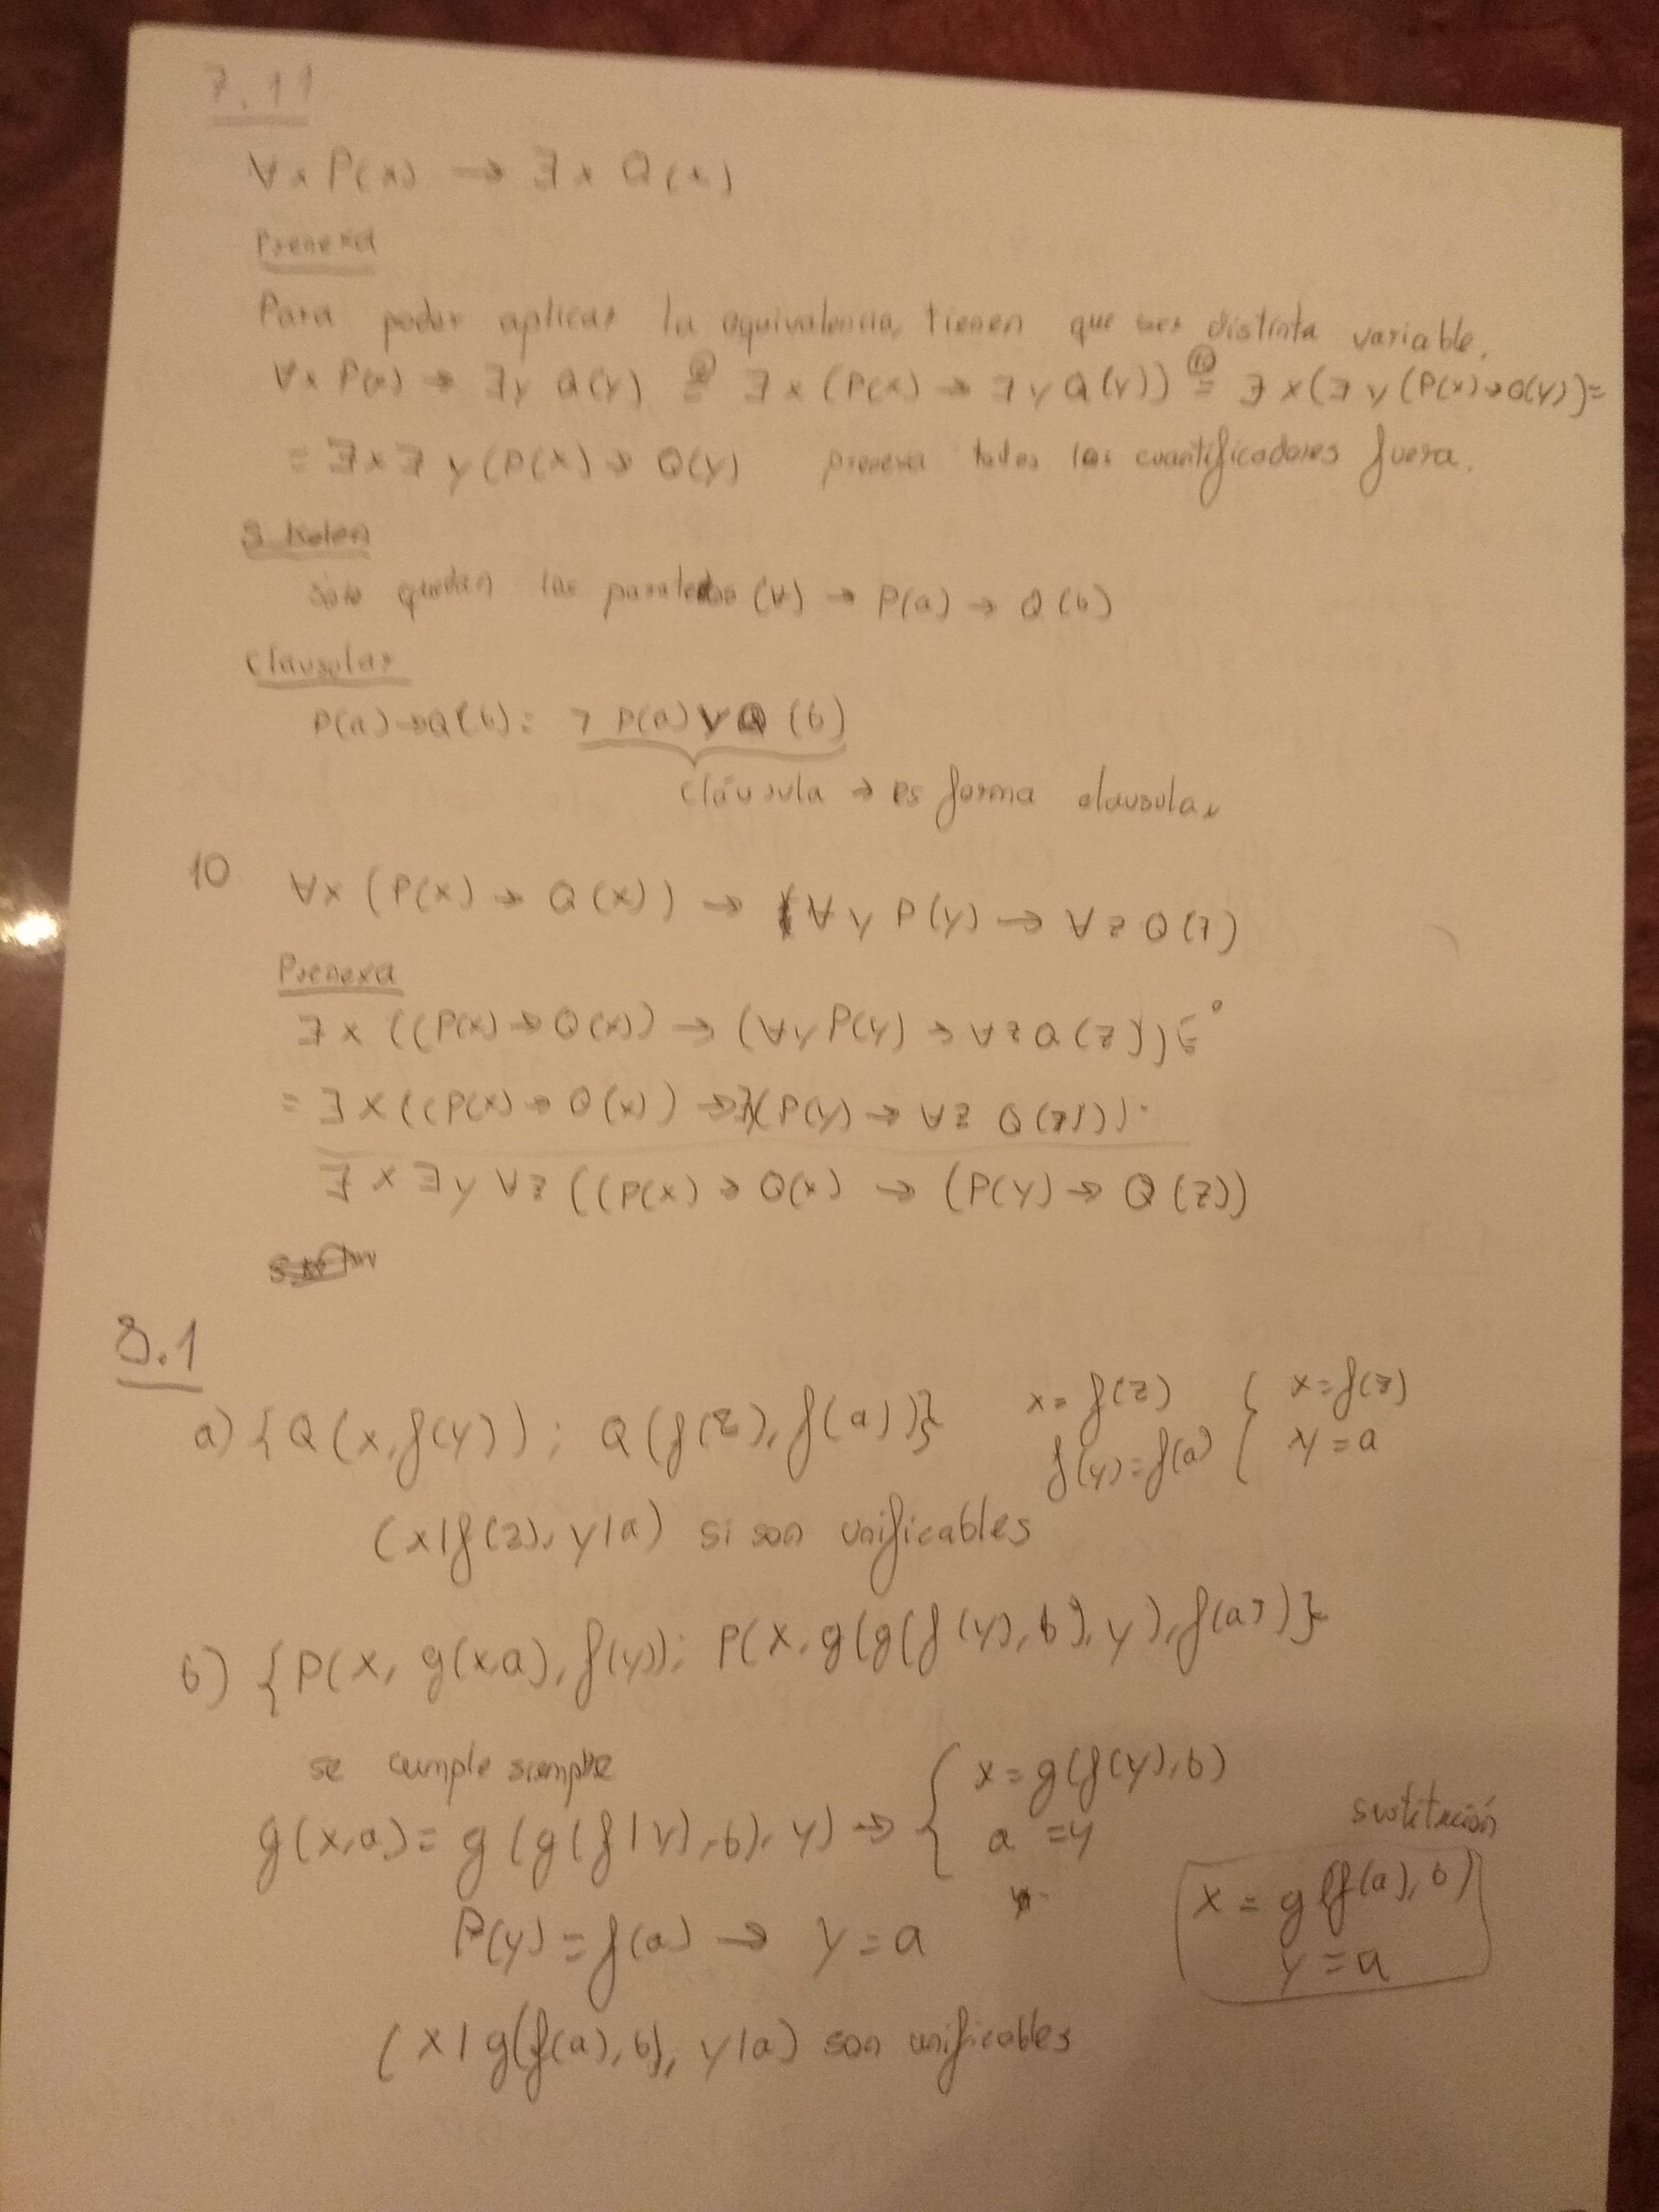 7.11
∀x P(x) → ∃x Q(x)
Prenexa
Para poder aplicar la equivalencia, tienen que ser distinta variable.
∀x P(x) → ∃y Q(y) = ∃x (P(x) → ∃y Q(y)) ⑩= ∃x(∃y (P(x)→Q(y))=
= ∃x∃y (P(x) → Q(y) prenexa todos los cuantificadores fuera.
Skolem
solo quedan los (∀) → P(a) → Q(b)
Clausular
P(a)→Q(b)= ¬P(a)∨Q(b)
cláusula → es forma clausular
10 ∀x (P(x) → Q(x)) → (∀y P(y) → ∀z Q(z)
Prenexa
∃x ((P(x) → Q(x)) → (∀y P(y) → ∀z Q(z))) =
= ∃x((P(x) → Q(x)) → ∃y(P(y) → ∀z Q(z)))
∃x ∃y ∀z ((P(x) → Q(x) → (P(y) → Q(z))
8.1
a) {Q(x,f(y)); Q(f(z),f(a))} x=f(z) { x=f(z)
f(y)=f(a) { y=a
(x|f(z), y|a) si son unificables
b) {P(x, g(x,a), f(y)); P(x, g(g(f(y),b),y),f(a))}
se cumple siempre
g(x,a)= g(g(f(y),b),y) → { x=g(f(y),b)
a=y
sustitución
x = g(f(a),b)
y=a
f(y)=f(a) → y=a
(x|g(f(a),b), y|a) son unificables